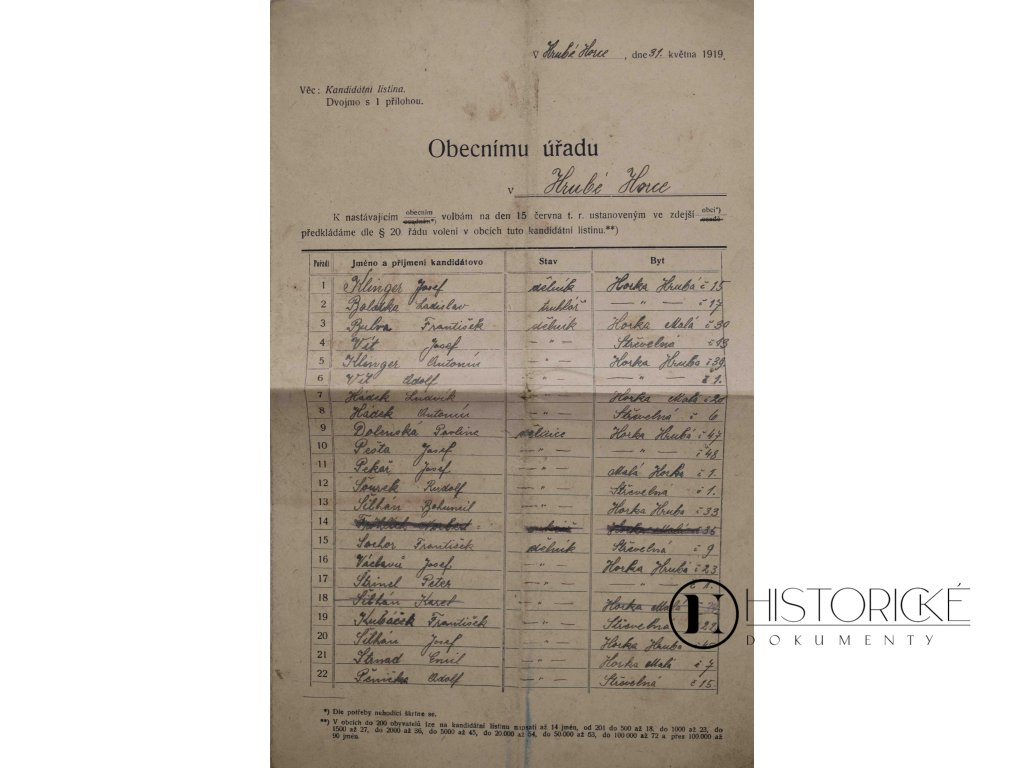 V Hrubé Horce, dne 31. května 1919.
Věc: Kandidátní listina.
Dvojmo s 1 přílohou.
Obecnímu úřadu
v Hrubé Horce
K nastávajícím obecním *) volbám na den 15 června t. r. ustanoveným ve zdejší obci*)
předkládáme dle § 20. řádu volení v obcích tuto kandidátní listinu.**)
Pořadí Jméno a příjmení kandidátovo Stav Byt
1 Klinger Josef dělník Horka Hrubá č 15
2 Ladislav truhlář — " — č 17
3 Bulva František dělník Horka Malá č 30
4 Vít Josef — " — Střevelná č 13
5 Klinger Antonín — " — Horka Hrubá č 39
6 Vít Adolf — " — — " — č 1.
7 Hádek Ludvík — " — Horka Malá č 20
8 Hádek Antonín — " — Střevelná č 6
9 Dolenská Pavline dělnice Horka Hrubá č 47
10 Pešta Josef — " — — " — č 48
11 Pekař Josef — " — Malá Horka č 1.
12 Šourek Rudolf — " — Střevelná č 1.
13 Šilhán Bohumil — " — Horka Hrubá č 33
14 Horka Malá 35
15 Sochor František dělník Střevelná č 9
16 Václavů Josef — " — Horka Hrubá č 23
17 Petr — " — — " —
18 Šilhán Karel — " — Horka Malá
19 Kubáček František — " — Střevelná 22
20 Šilhán Josef — " — Horka Hrubá
21 Strnad Emil — " — Horka Malá č 7
22 Pěnička Adolf — " — Střevelná č 15.
*) Dle potřeby nehodící škrtne se.
**) V obcích do 200 obyvatelů lze na kandidátní listinu napsati až 14 jmén, od 201 do 500 až 18, do 1000 až 23, do
1500 až 27, do 2000 až 36, do 5000 až 45, do 20.000 až 54, do 50.000 až 63, do 100.000 až 72 a přes 100.000 až
90 jmén.
HISTORICKÉ
DOKUMENTY